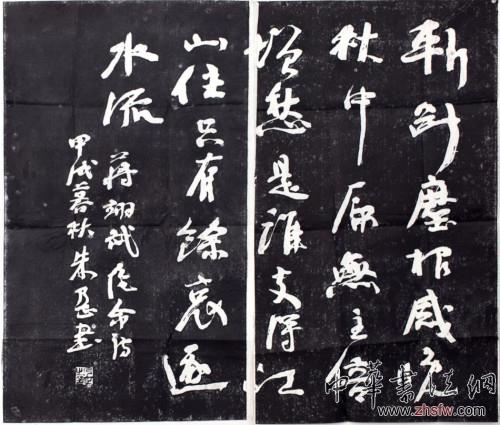 斬劍塵埋感
秋中原無主倍
增愁是誰支得江
山住只有餘哀逐
水流
蔣翊武命詩
甲戌暮秋朱書
中華書法網
www.zhsfw.com